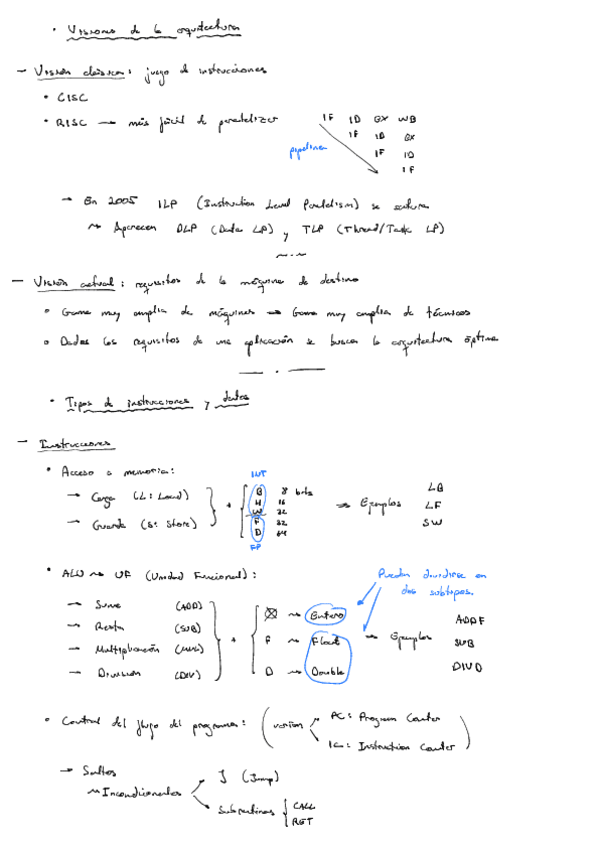 • Visiones de la arquitectura
– Visión clásica: juego de instrucciones
• CISC
• RISC → más fácil de paralelizar
IF ID EX WB
IF ID EX
pipeline
IF ID
IF
→ En 2005 ILP (Instruction Level Paralelism) se satura
↝ Aparecen DLP (Data LP) y TLP (Thread/Task LP)
– Visión actual: requisitos de la máquina de destino
• Gama muy amplia de máquinas → Gama muy amplia de técnicas
• Dados los requisitos de una aplicación se busca la arquitectura óptima
• Tipos de instrucciones y datos
– Instrucciones
• Acceso a memoria:
INT
→ Carga (L: Load)
→ Guarda (S: Store)
+
B 8 bits
H 16
W 32
F 32
D 64
FP
⇒ Ejemplos
LB
LF
SW
• ALU ↝ UF (Unidad Funcional):
Pueden dividirse en
dos subtipos.
→ Suma (ADD)
→ Resta (SUB)
→ Multiplicación (MUL)
→ División (DIV)
+
↝ Entero
F ↝ Float
D ↝ Double
⇒ Ejemplos
ADDF
SUB
DIVD
• Control del flujo del programa: (varían
PC: Program Counter
IC: Instruction Counter)
→ Saltos
↝ Incondicionales
J (Jump)
Subrutinas { CALL
RET